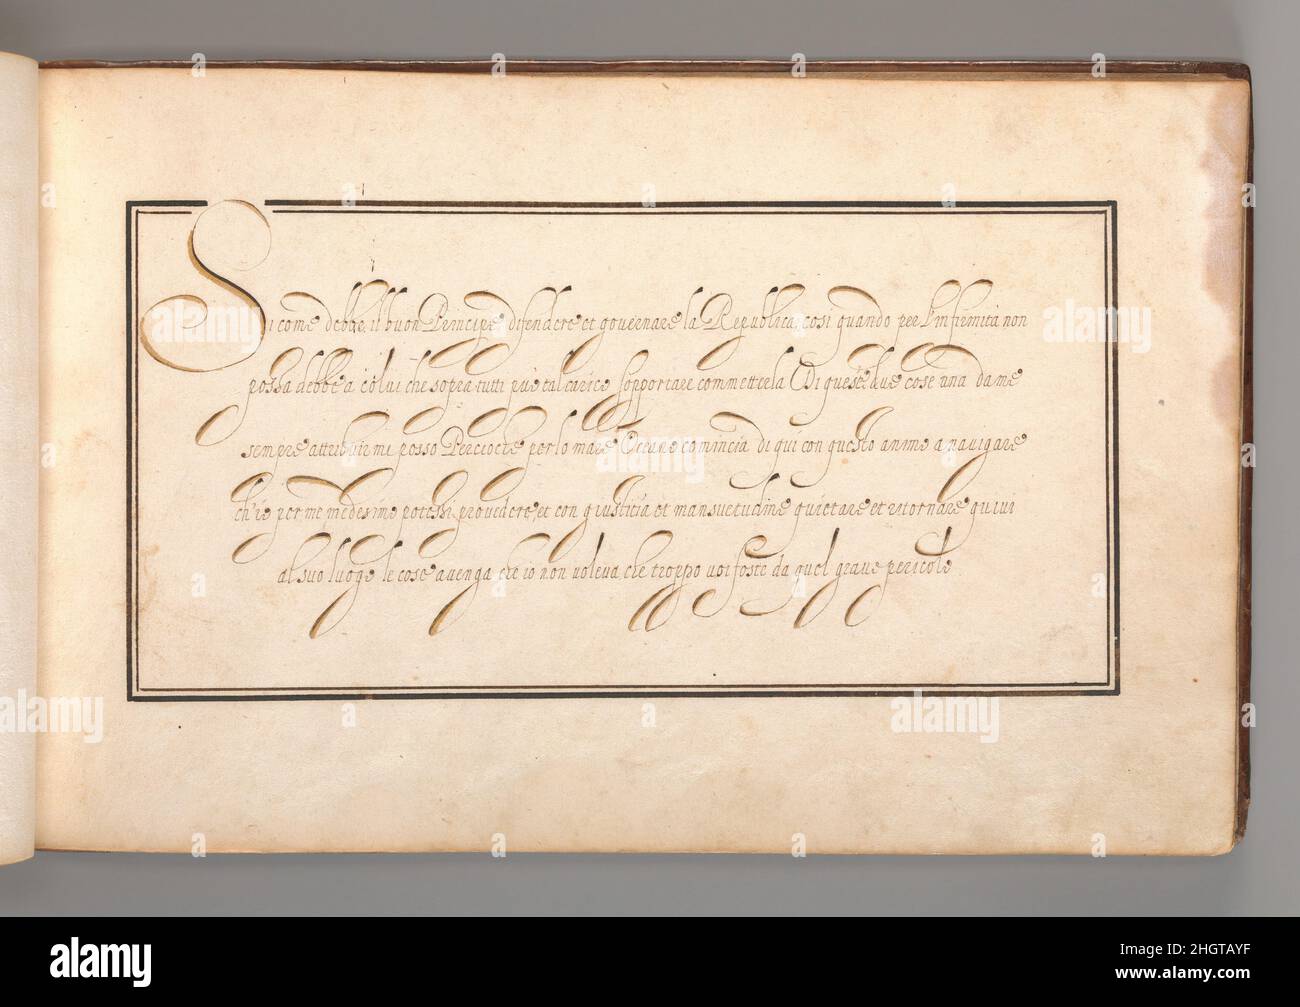 Si come debbe il buon Principe difendere et governare la Republica, cosi quando per l'infirmità non
possa debbe a colui che sopra tutti può tal carico sopportare commetterla Di queste due cose una da me
sempre attribuir mi posso Percioche per lo mare Oceano comincia di qui con questo animo a navigare
ch'io per me medesimo potessi provedere, et con giustitia et mansuetudine quietare et ritornare quivi
al suo luogo le cose avenga che io non voleva che troppo voi foste da quel grave pericolo
alamy
Image ID: 2HGTAYF
www.alamy.com